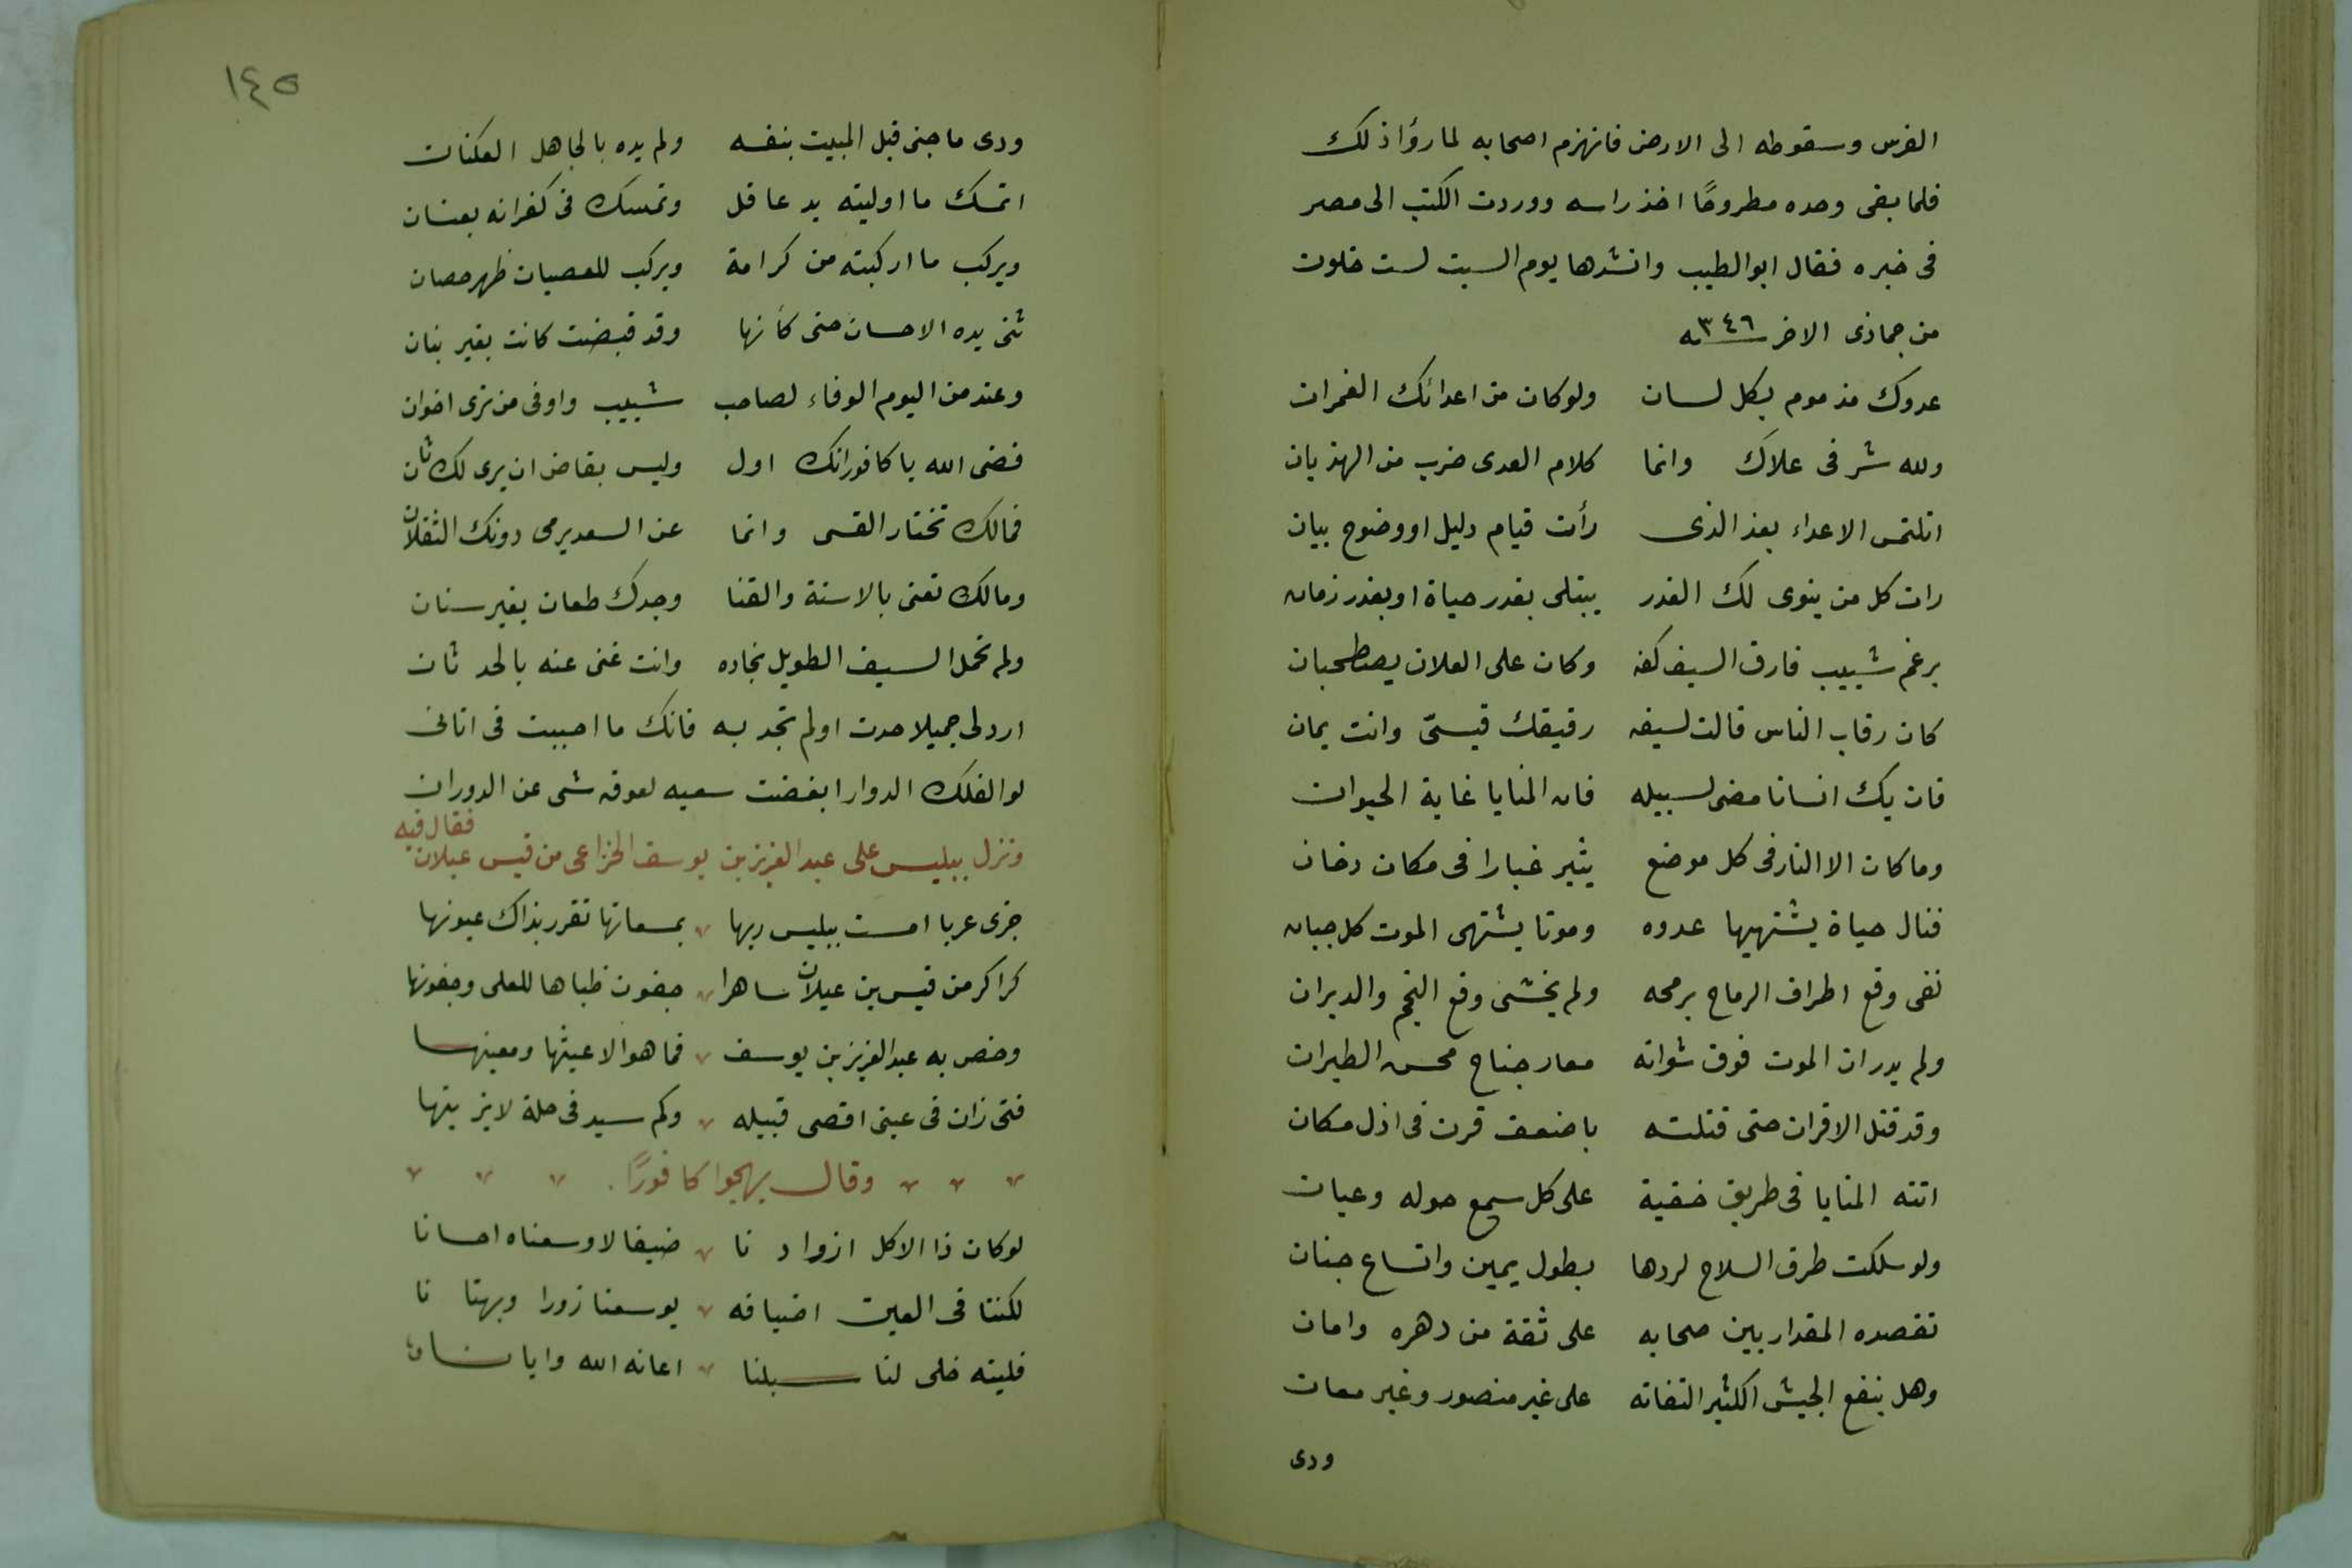 الفرس وسقوطه الى الارض فانهزم اصحابه لما رؤا ذلك
فلما بقى وحده مطروحًا اخذ راسه ووردت الكتب الى مصر
فى خبره فقال ابو الطيب وانشدها يوم السبت لست خلون
من جمادى الاخر سنه ٣٤٦
عدوك مذموم بكل لسان ولو كان من اعدائك القمران
ولله شر فى علاك وانما كلام العدى ضرب من الهذيان
اتلتمس الاعداء بعد الذى رأت قيام دليل او وضوح بيان
رات كل من ينوى لك الغدر يبتلى بغدر حياة او بغدر زمان
برغم شبيب فارق السيف كفه وكان على العلات يصطحبان
كان رقاب الناس قالت لسيفه رفيقك قيسىّ وانت يمان
فان يك انسانا مضى لسبيله فان المنايا غاية الحيوان
وما كان الا النار فى كل موضع يثير غبارا فى مكان دخان
فنال حياة يشتهيها عدوه وموتا يشتهى الموت كل جبان
نفى وقع اطراف الرماح برمحه ولم يخشى وقع النجم والدبران
ولم يدر ان الموت فوق شواته معار جناح محسن الطيران
وقد قتل الاقران حتى قتلته باضعف قرن فى اذل مكان
اتته المنايا فى طريق خفية على كل سمع حوله وعيان
ولو سلكت طرق السلاح لردها بطول يمين واتساع جنان
تقصده المقدار بين صحابه على ثقة من دهره وامان
وهل ينفع الجيش الكثير التفاته على غير منصور وغير معان
ودى
١٤٥
ودى ما جنى قبل المبيت بنفسه ولم يده بالجاهل العكنان
اتمسك ما اوليته يد عاقل وتمسك فى كفرانه بعنان
ويركب ما اركبته من كرامة ويركب للعصيان ظهر حصان
ثنى يده الاحسان حتى كأنها وقد قبضت كانت بغير بنان
وعند من اليوم الوفاء لصاحب شبيب واوفى من ترى اخوان
قضى الله يا كافور انك اول وليس بقاض ان يرى لك ثان
فمالك تختار القسى وانما عن السعد يرمى دونك الثقلان
ومالك تعنى بالاسنة والقنا وجدك طعان بغير سنان
ولم تحمل السيف الطويل نجاده وانت غنى عنه بالحد ثان
ارد لى جميلا جدت او لم تجد به فانك ما احببت فى اتانى
لو الفلك الدوار ابغضت سعيه لعوقه شى عن الدوران
ونزل ببلبيس على عبد العزيز بن يوسف الخزاعى من قيس عيلان فقال فيه
جزى عربا امست ببلبيس ربها بمسعاتها تقرر بذاك عيونها
كراكر من قيس بن عيلان ساهرا جفون ظباها للعلى وجفونها
وخص به عبد العزيز بن يوسف فما هو الا غيثها ومعينها
فتى زان فى عينى اقصى قبيله وكم سيد فى حلة لا يزينها
وقال يهجوا كافورًا.
لو كان ذا الاكل ازوادنا ضيفا لاوسعناه احسانا
لكننا فى العين اضيافه يوسعنا زورا وبهتانا
فليته خلى لنا سبلنا اعانه الله وايانا